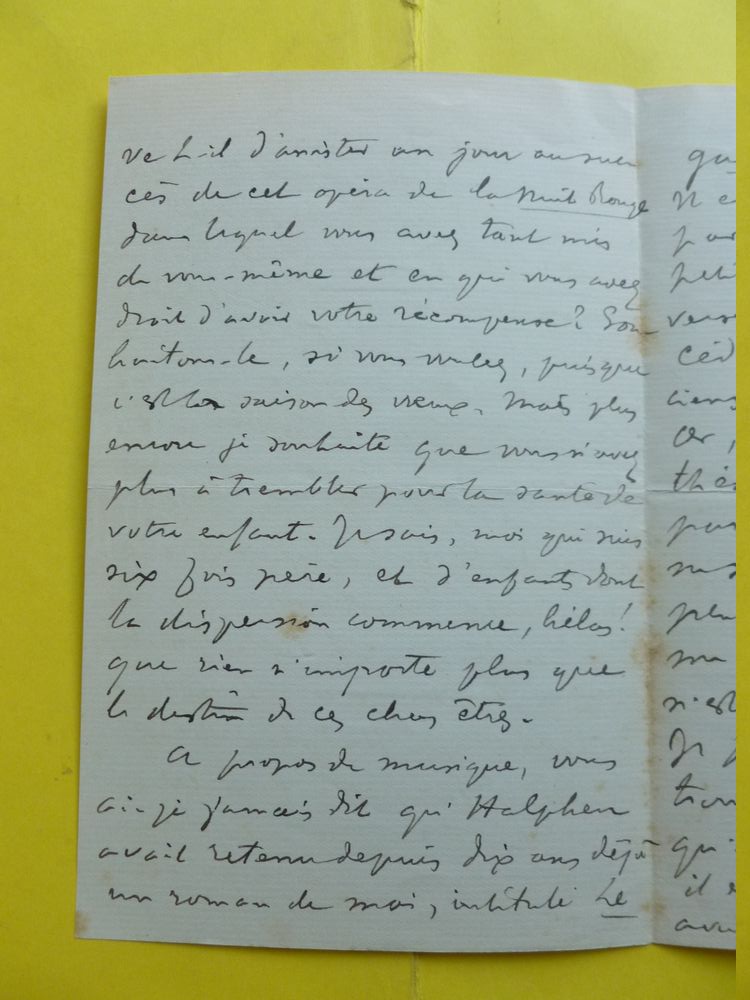 ve t-il d'assister un jour au suc
cès de cet opéra de la Nuit Rouge
dans lequel vous avez tant mis
de vous-même et en qui vous avez
droit d'avoir votre récompense? Sou
haitons-le, si vous voulez, puisque
c'est la saison des vœux. Mais plus
encore je souhaite que vous n'ayez
plus à trembler pour la santé de
votre enfant. Je sais, moi qui suis
six fois père, et d'enfants dont
la dispersion commence, hélas!
que rien n'importe plus que
le destin de ces chers êtres.
A propos de musique, vous
ai-je jamais dit qu'Halphen
avait retenu depuis dix ans déjà
un roman de moi, intitulé Le
qu
Il e
par
peti
verse
céd
ciens
Or,
thé
pas
plu
ma
n'est
Je
trou
qui
il e